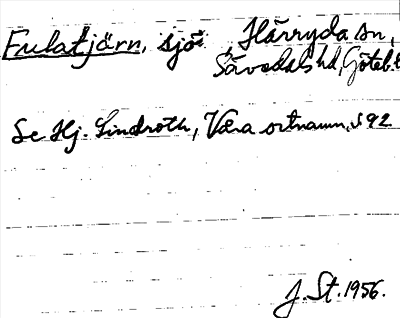 Fulatjärn, sjö i Härryda sn,
Sävedals hd, Göteb.
Se Hj. Lindroth, Våra ortnamn, s 92
J. St. 1956.